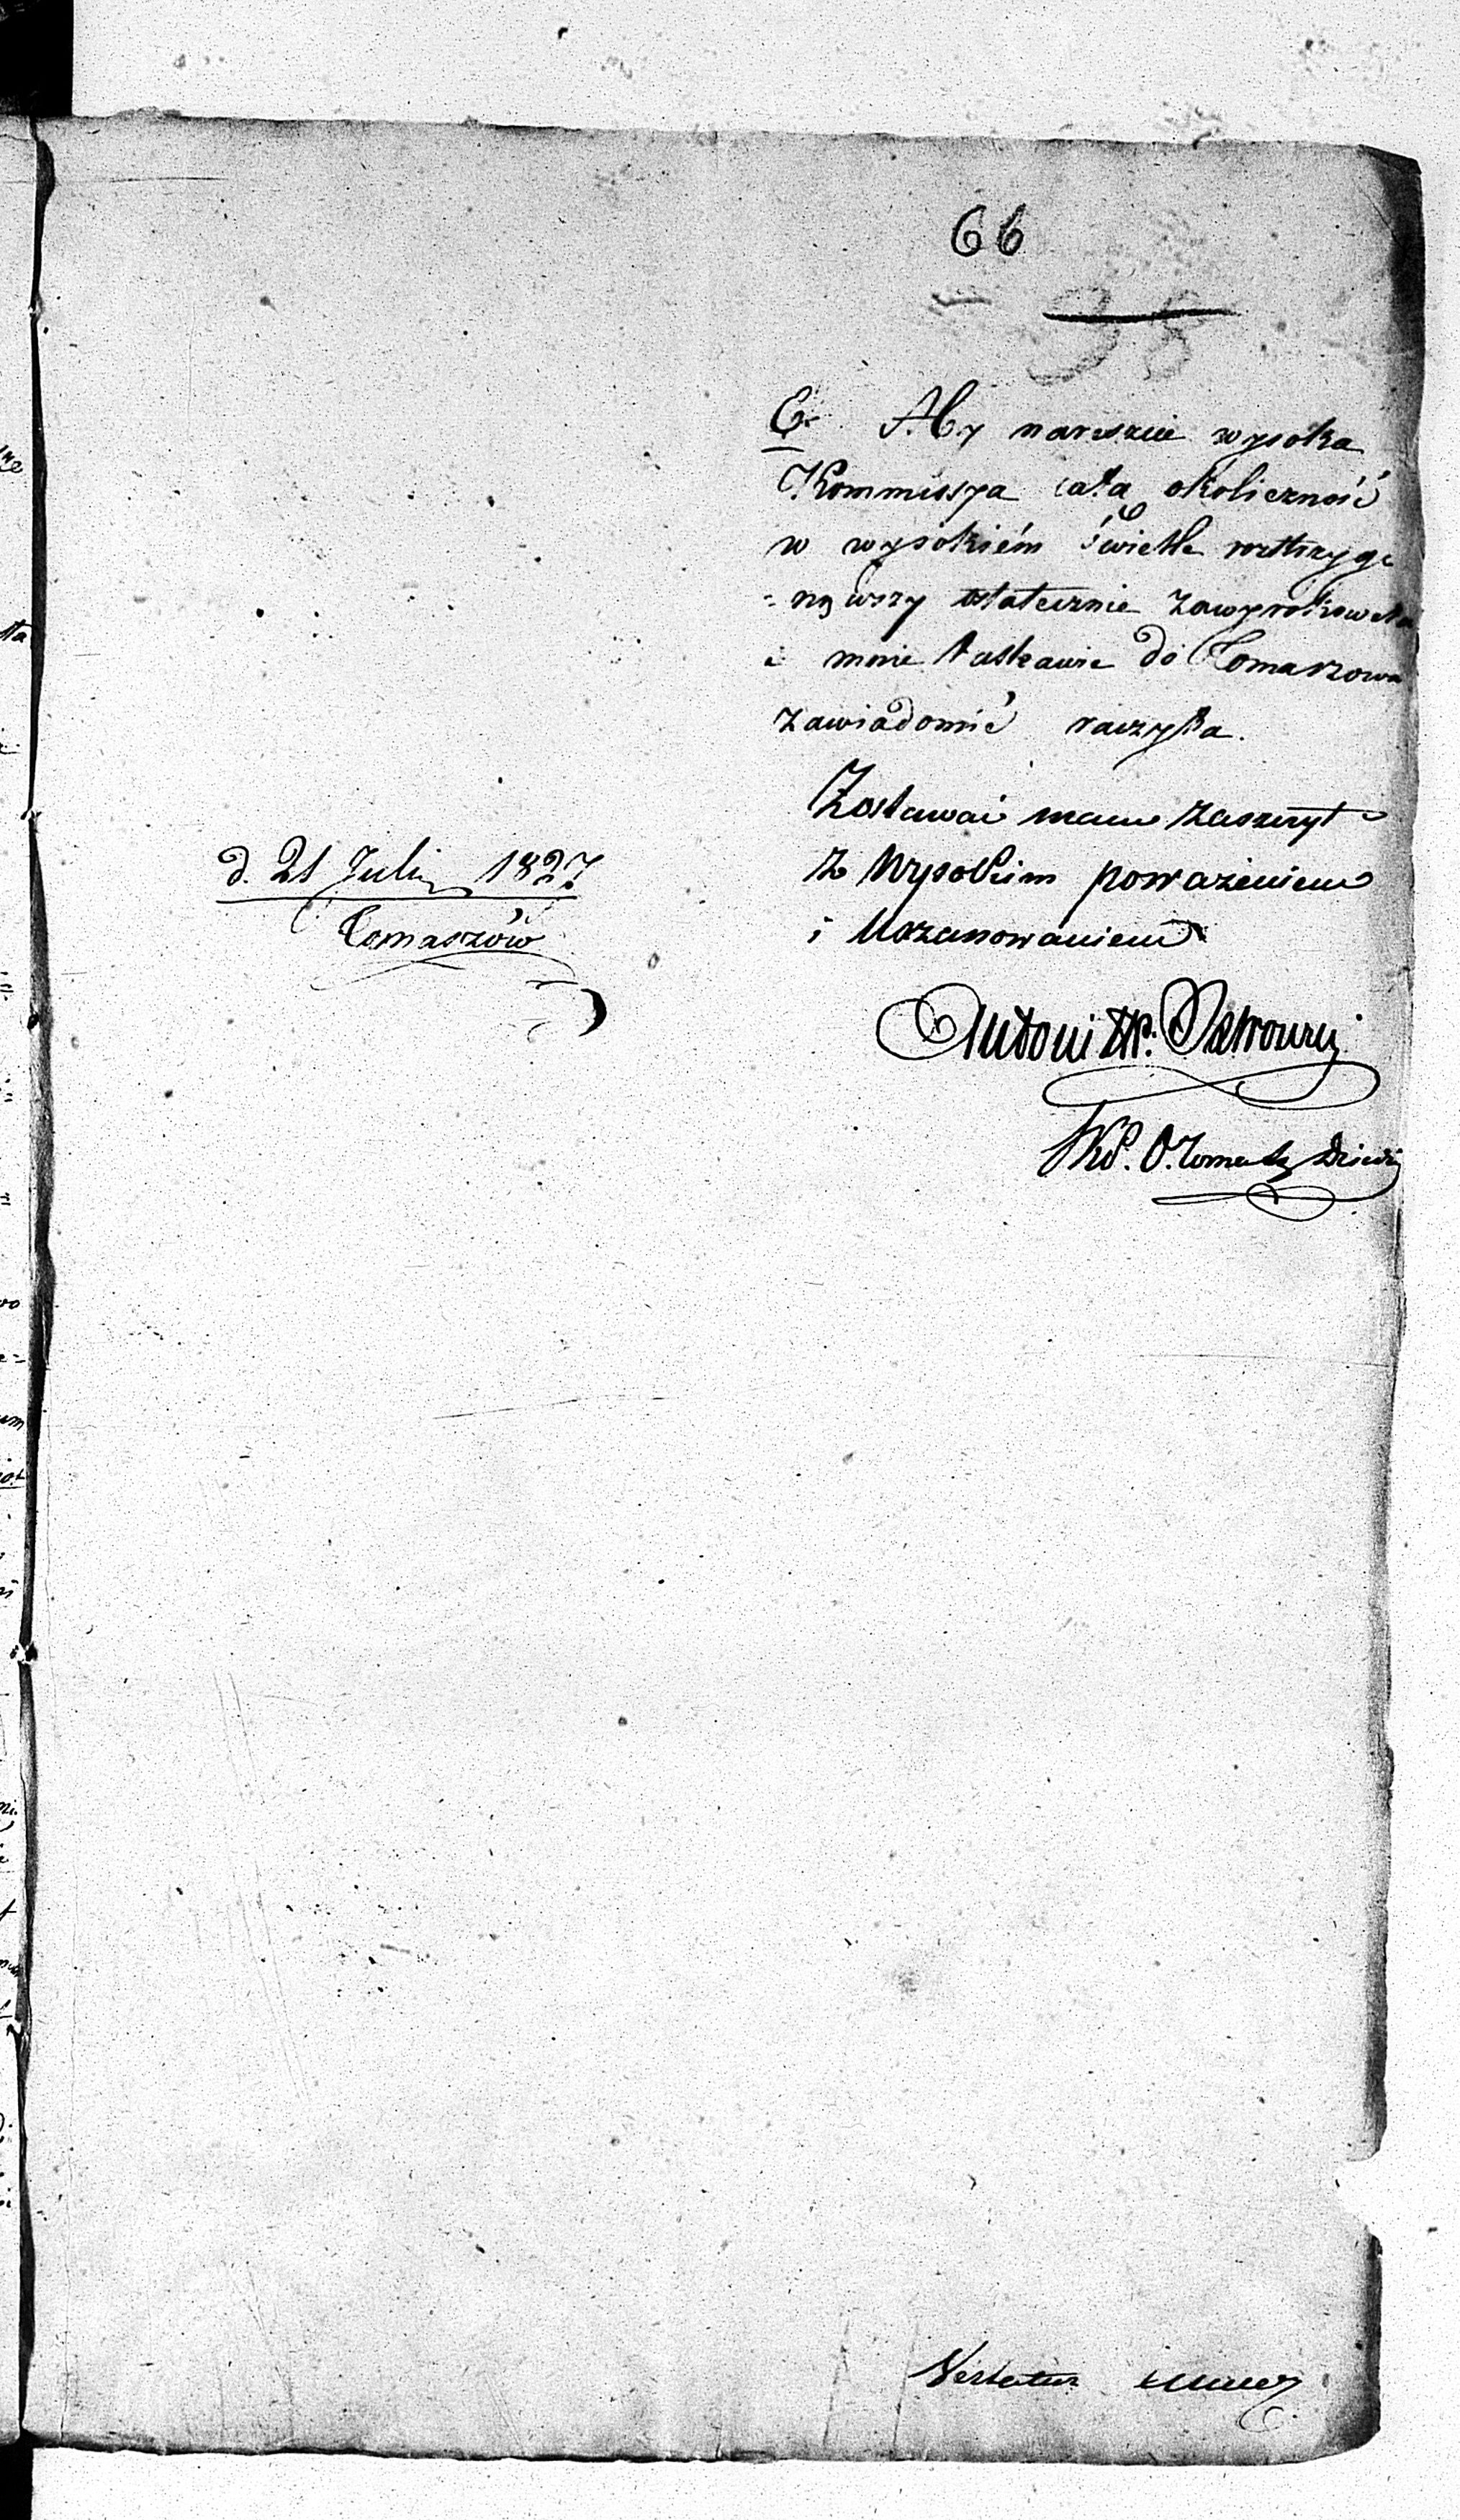 66
38
C. Aby nareszcie wysoka
Kommissya całą okoliczność
w wysokiém świetle roztrzyg
=nąwszy ostatecznie zawyrokowała
i mnie łaskawie do Tomaszowa
zawiadomić raczyła.
Zostawać mam zaszczyt
z wysokim poważeniem
i Uszanowaniem
d. 21 Julii 1827
Tomaszów
Antoni Hr. Ostrowski
Vertatur